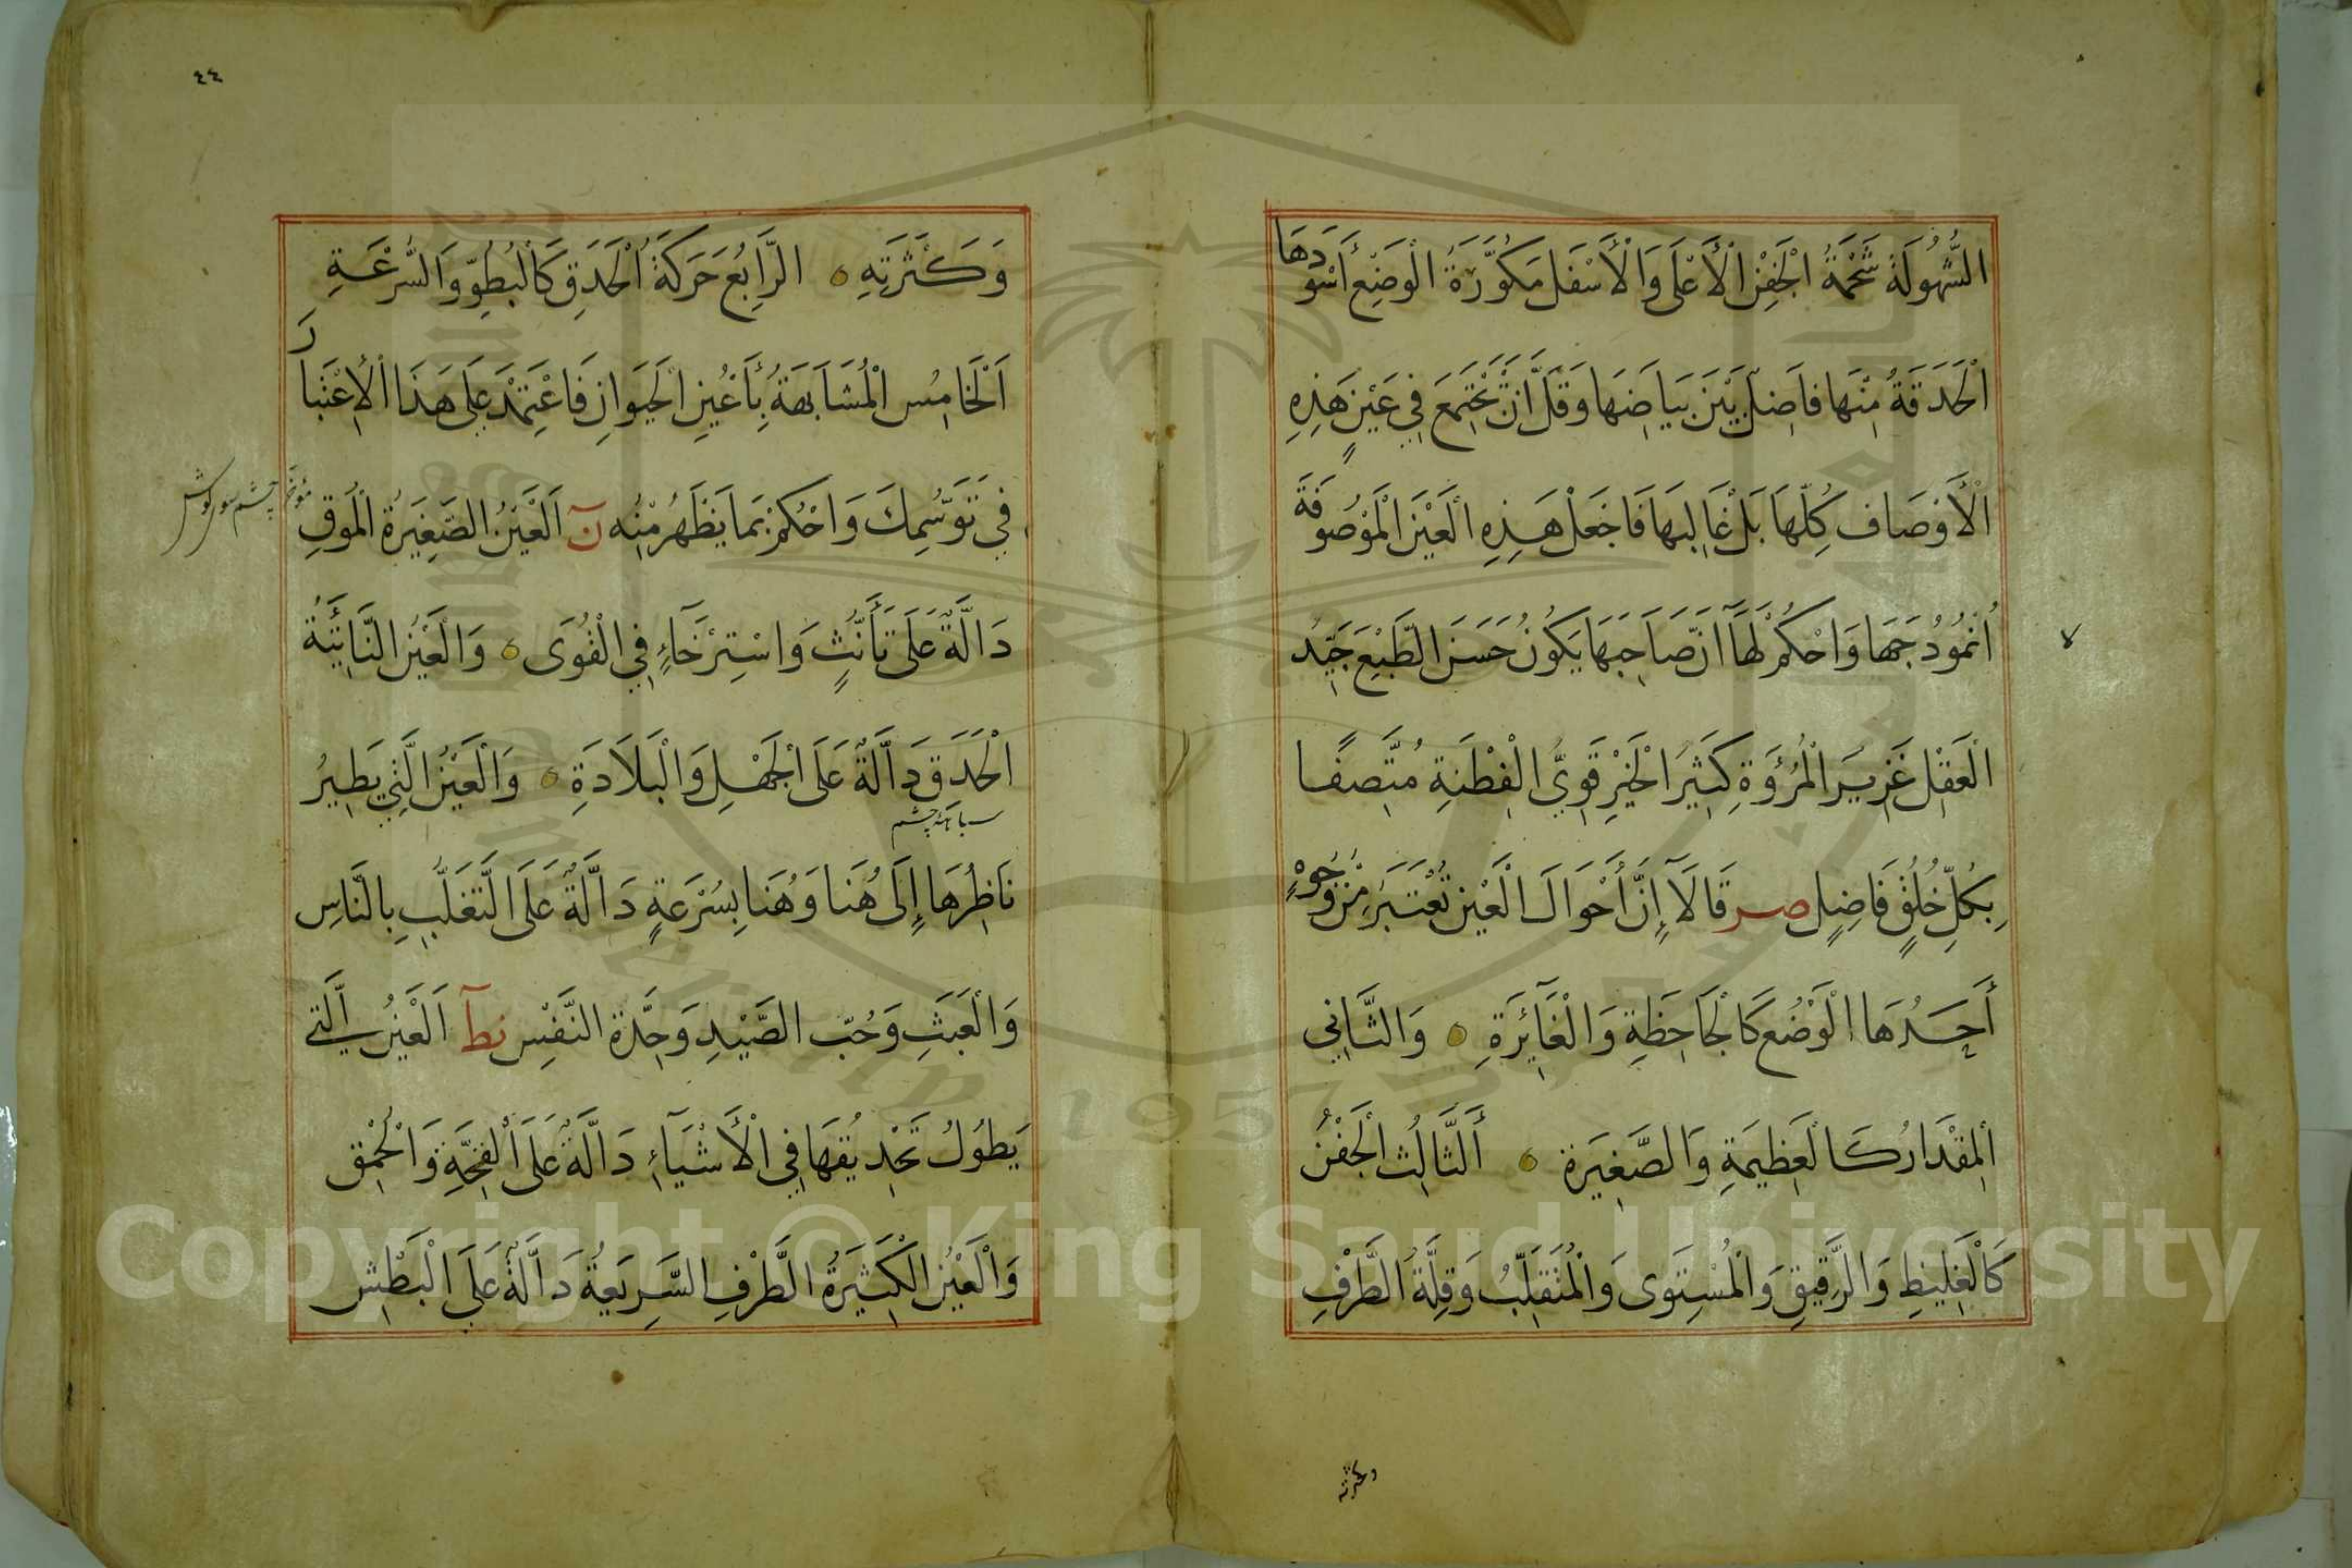 الشُّهُولَةَ شَحْمَةُ الْجَفْنِ الْأَعْلَى وَالْأَسْفَلِ مَكُوَّرَةُ الْوَضْعِ أَسْوَدَهَا
الْحَدَقَةُ مِنْهَا فَاضِلٌ بَيْنَ بَيَاضِهَا وَقَلَّ أَنْ تَجْتَمِعَ فِي عَيْنٍ هَذِهِ
الْأَوْصَافُ كُلُّهَا بَلْ غَالِبُهَا فَاجْعَلْ هَذِهِ الْعَيْنَ الْمَوْصُوفَةَ
أُنْمُوذَجَهَا وَاحْكُمْ لَهَا أَنَّ صَاحِبَهَا يَكُونُ حَسَنَ الطَّبْعِ جَيِّدَ
الْعَقْلِ غَزِيرَ الْمُرُؤَةِ كَثِيرَ الْخَيْرِ قَوِيَّ الْفِطْنَةِ مُتَّصِفًا
بِكُلِّ خُلُقٍ فَاضِلٍ صر قَالَا إِنَّ أَحْوَالَ الْعَيْنِ تُعْتَبَرُ مِنْ وُجُوهٍ
أَحَدُهَا الْوَضْعُ كَالْجَاحِظَةِ وَالْغَآئِرَةِ وَالثَّانِي
الْمِقْدَارُ كَالْعَظِيمَةِ وَالصَّغِيرَةِ أَلثَّالِثُ الْجَفْنُ
كَالْغَلِيظِ وَالرَّقِيقِ وَالْمُسْتَوِى وَالْمُنْقَلِبُ وَقِلَّةُ الطَّرْفِ
وكثرته
٤٤
وَكَثْرَتِهِ الرَّابِعُ حَرَكَةُ الْحَدَقِ كَالْبُطُوِّ وَالسُّرْعَةِ
اَلْخَامِسُ الْمُشَابَهَةُ بِأَعْيُنِ الْحَيَوَانِ فَاعْتَمِدْ عَلَى هَذَا الْاِعْتِبَارَ
فِي تَوَسُّمِكَ وَاحْكُمْ بِمَا يَظْهَرُ مِنْهُ نَ اَلْعَيْنُ الصَّغِيرَةُ الْمُوقِ
دَالَّةٌ عَلَى تَأَنُّثٍ وَاسْتِرْخَآءٍ فِي الْقُوَى وَالْعَيْنُ النَّاتِئَةُ
الْحَدَقِ دَالَّةٌ عَلَى الْجَهْلِ وَالْبَلَادَةِ وَالْعَيْنُ الَّتِي يَطِيرُ
نَاظِرُهَا إِلَى هُنَا وَهُنَا بِسُرْعَةٍ دَالَّةٌ عَلَى التَّغَلُّبِ بِالنَّاسِ
وَالْعَبَثِ وَحُبِّ الصَّيْدِ وَحِدَّةِ النَّفْسِ نط اَلْعَيْنُ الَّتِي
يَطُولُ تَحْدِيقُهَا فِي الْأَشْيَآءِ دَالَّةٌ عَلَى الْفِحَّةِ وَالْحُمْقِ
وَالْعَيْنُ الْكَثِيرَةُ الطَّرْفِ السَّرِيعَةُ دَالَّةٌ عَلَى الْبَطْشِ
Copyright © King Saud University
1957